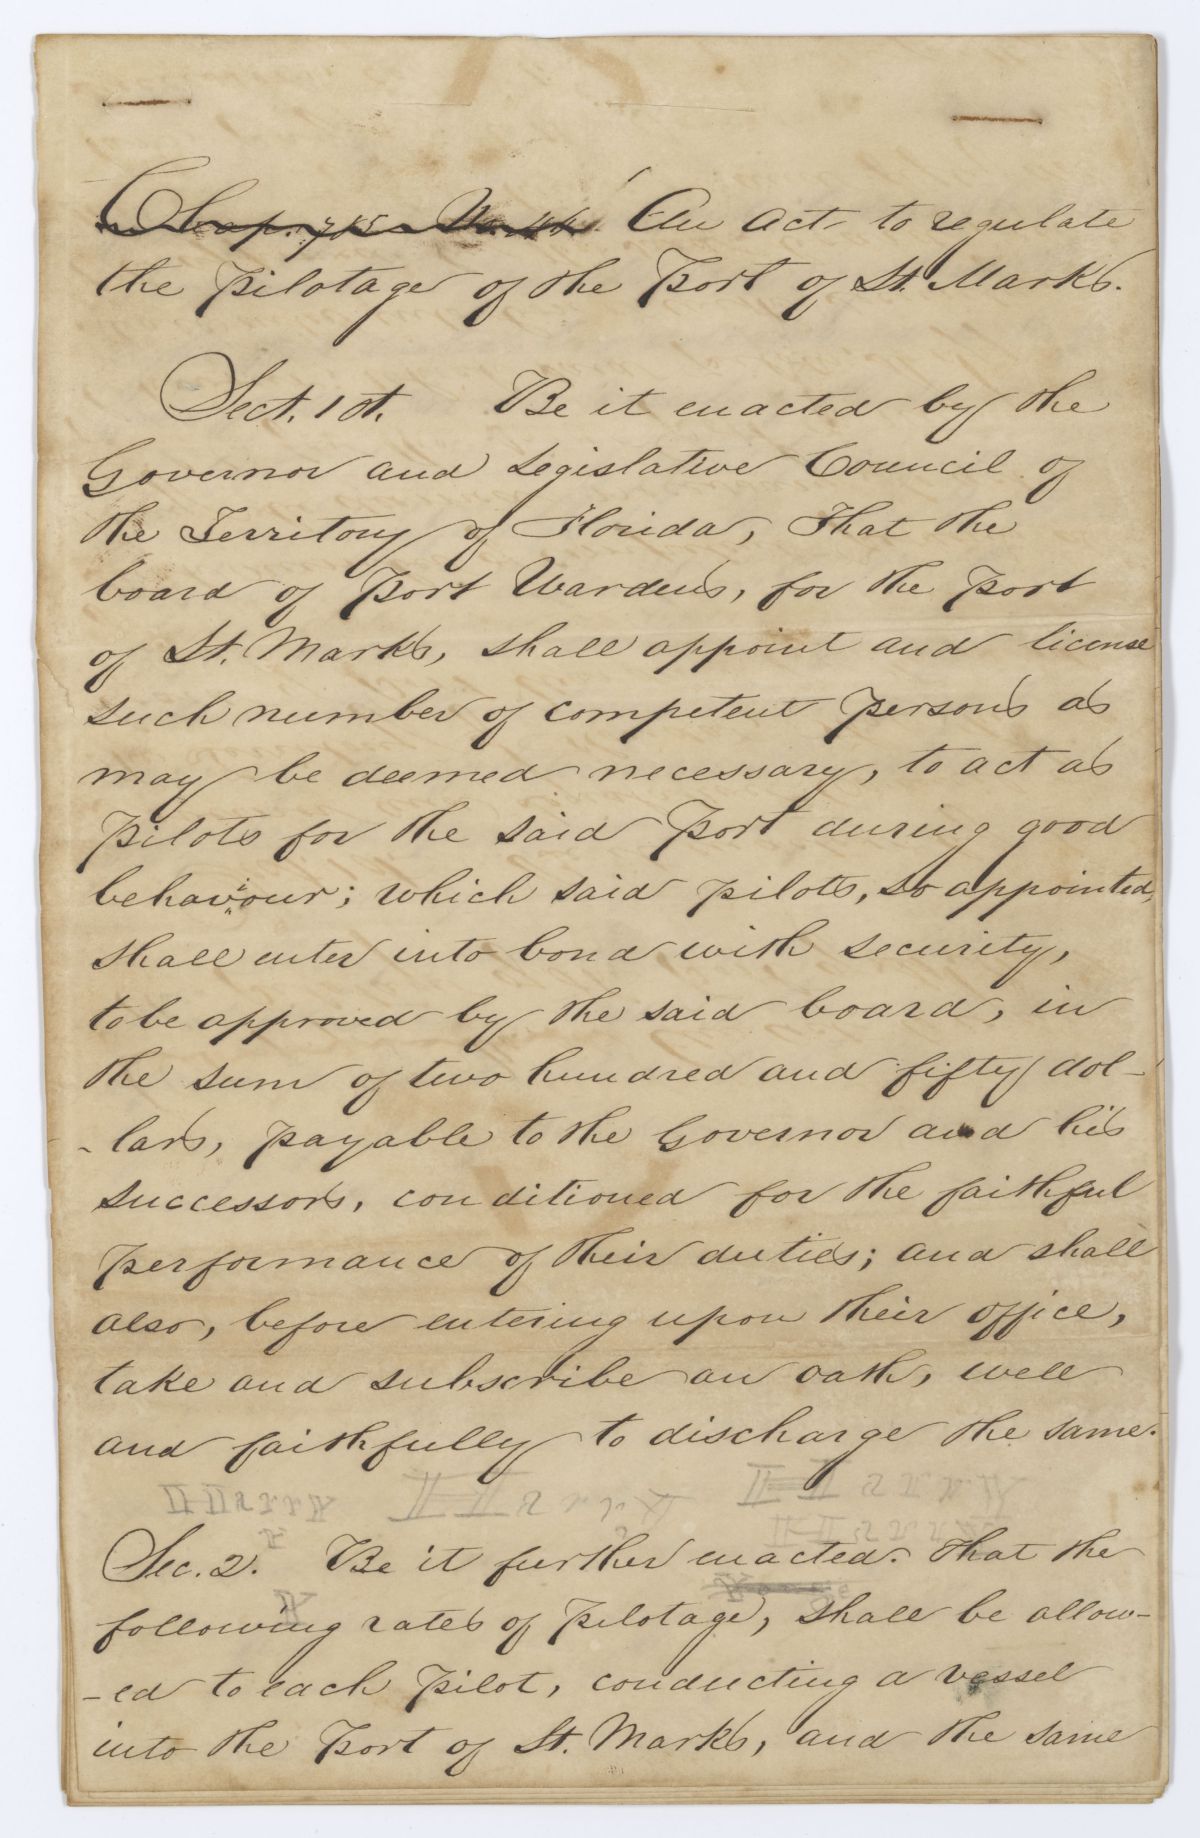 Chap. 785 No. 46. An act to regulate
the pilotage of the Port of St. Marks.
Sect. 1st. Be it enacted by the
Governor and Legislative Council of
the Territory of Florida, That the
board of Port Wardens, for the Port
of St. Marks, shall appoint and license
such number of competent persons as
may be deemed necessary, to act as
pilots for the said Port during good
behaviour; which said pilots, so appointed,
shall enter into bond with security,
to be approved by the said board, in
the sum of two hundred and fifty dol-
-lars, payable to the Governor and his
successors, conditioned for the faithful
performance of their duties; and shall
also, before entering upon their office,
take and subscribe an oath, well
and faithfully to discharge the same.
Sec. 2. Be it further enacted. That the
following rates of pilotage, shall be allow-
-ed to each pilot, conducting a vessel
into the Port of St. Marks, and the same